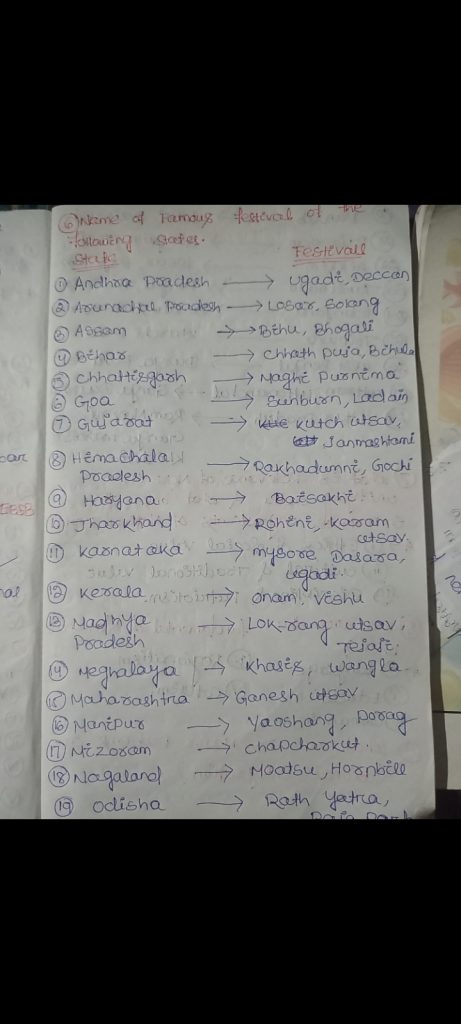 ⑥ Name of Famous festival of the
following states.
State Festivall
① Andhra Pradesh → Ugadi, Deccan
② Arunachal Pradesh → Losar, Solang
③ Assam → Bihu, Bhogali
④ Bihar → Chhath Puja, Bihula
⑤ Chhattisgarh → Maghi Purnima
⑥ Goa → Sunburn, Ladain
⑦ Gujarat → Kutch utsav,
Janmashtami
⑧ Himachala
Pradesh → Rakhadumni, Gochi
⑨ Haryana → Baisakhi
⑩ Jharkhand → Rohini, Karam
utsav
⑪ Karnataka → mysore Dasara,
ugadi.
⑫ Kerala → onam, Vishu
⑬ Madhya → Lok-rang utsav,
Pradesh Tejaji,
⑭ Meghalaya → Khasis, Wangla
⑮ Maharashtra → Ganesh utsav
⑯ Manipur → Yaoshang, Porag
⑰ Mizoram → Chapcharkut.
⑱ Nagaland → Moatsu, Hornbill
⑲ Odisha → Rath Yatra,